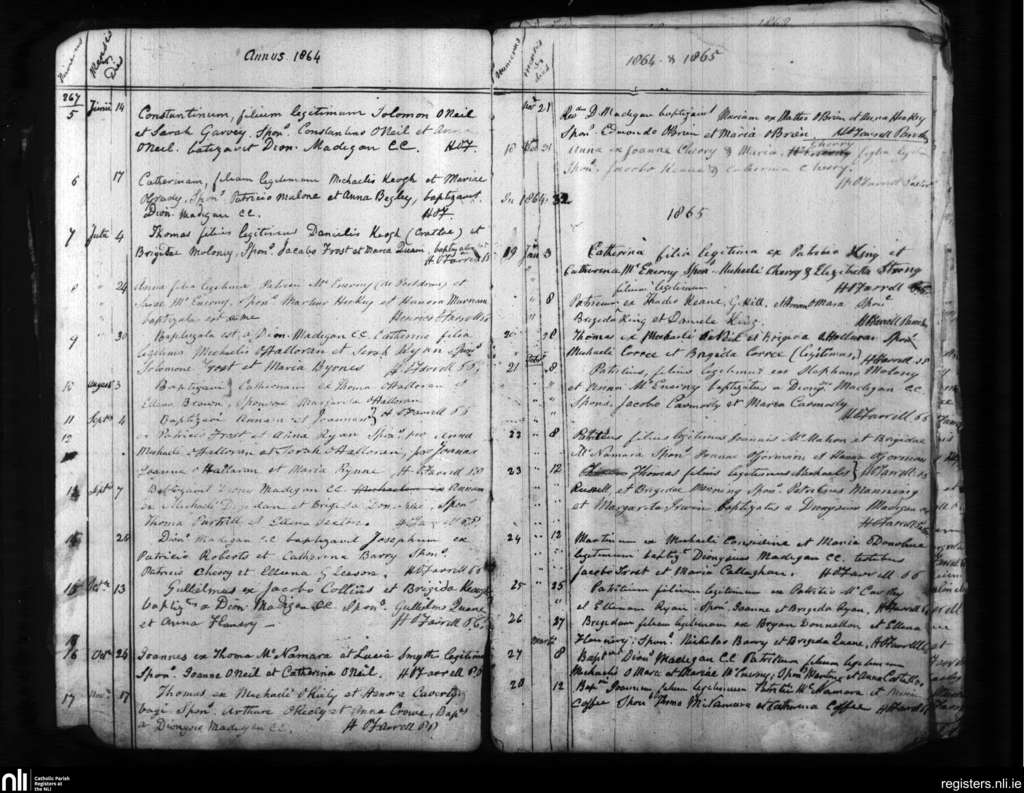 Numerus
Mensis & Dies
Annus 1864
267
5 Junii 14 Constantinum, filium legitimum Solomon O'Neil
et Sarah Garvey. Spon. Constantino O'Neil et Anna
O'Neil. batizavit Dion. Madigan C.C. H O'F.
6 17 Catherinam, filiam legitimam Michaelis Keogh et Mariae
O'Grady. Spon. Patricio Malone et Anna Begley, baptizavit
Dion. Madigan C.C. H O'F.
7 Julii 4 Thomas filius legitimus Danielis Keogh (Cratloe) et
Brigitae Moloney, Spon. Jacobo Frost et Maria Quain, baptizatus
H O'Farrell
8 24 Anna filia legitima Patricii McEnerny et
McEnerny, Spon. Martino Hickey et Hanora
baptizata est a me
9 30 Baptizata est a Dion. Madigan C.C. Catherina filia
legitima Michaelis O'Halloran et Sarah Ryan Spon.
Solomone Frost et Maria Byrnes H O'Farrell P.P.
10 August 3 Baptizavi Catherinam ex Thoma O'Halloran et
Ellena Brown, Sponsore Margarita O'Halloran
11 Sept 4 Baptizavi Annam et Joannam H O'Farrell P.P.
12 ex Patricio Frost et Anna Ryan Spon. pro Anna
Michaele O'Halloran et Sarah O'Halloran, pro Joanna
Joanne O'Halloran et Maria Rynne, H O'Farrell P.P.
13 Sept 7 Baptizavit Dion. Madigan C.C. Annam
ex Michaele et Brigida Spon.
Thoma et Ellena H O'Farrell P.P.
14 28 Dion. Madigan C.C. baptizavit Josephum ex
Patricio Roberts et Catherina Barry Spon.
Patricio Cherry et Ellena Gleeson. H O'Farrell P.P.
15 Oct 13 Gullielmus ex Jacobo Collins et Brigida Keogh
baptiz. a Dion. Madigan C.C. Spon. Gullielmo Quane
et Anna Flannery — H O'Farrell P.P.
16 Oct 26 Joannes ex Thoma McNamara et Lucia Smythe legitimus
Spon. Joanne O'Neil et Catherina O'Neil. H O'Farrell P.P.
17 Nov 17 Thomas ex Michaele O'Kiely et Hanora
Spon. Arthuro O'Kiely et Anna Crowe, Bap.
a Dionysio Madigan C.C. H O'Farrell P.P.
Numerus
Mensis & Dies
1864 & 1865
Nov 21 Rev. D. Madigan baptizavit Mariam ex Matteo O'Brien et Anna Hickey
Spon. Edmundo O'Brien et Maria O'Brien, H O'Farrell Parochus
18 Dec 31 Anna ex Joanne Cherry & Maria Cherry filia legitima
Spon. Jacobo Keane & Catherina Cherry.
H O'Farrell
In 1864. 32
1865
19 Jan 3 Catherina filia legitima ex Patricio King et
Catherina McEnerny Spon. Michaele Cherry & Elizabetha Strong
filium legitimum H O'Farrell
8 Patricium ex Thadeo Keane, G. Hill, et Anna O'Mara Spon.
Brigida King et Daniele King H O'Farrell
20 28 Thomas ex Michaele O'Neil et Brigida O'Halloran Spon.
Michaele Corree et Brigida Corree (legitimus,) H O'Farrell P.P.
21 Feb 8 Patritius, filius legitimus ex Stephano Moloney
et McEnerny baptizatus a Dionysio Madigan C.C.
Spons. Jacobo Carmody et Maria Carmody
H O'Farrell P.P.
22 8 Patritius filius legitimus Joannis McMahon et Brigidae
McNamara Spon. Joanne O'Gorman et O'Gorman
23 12 Thomas filius legitimus Michaelis H O'Farrell P.P.
Russell et Brigidae Manning Spon. Patritius Manning
et Margarita baptizatus a Dionysio Madigan
H O'Farrell
24 12 Martinum ex Michaele Considine et Maria O'Donohue
legitimum baptiz. Dionysius Madigan C.C. testibus
Jacobo Frost et Maria Callaghan. H O'Farrell P.P.
25 25 Patritium filium legitimum ex Patritio McCarthy
et Ellenam Ryan. Spon. Joanne et Brigida Ryan, H O'Farrell
26 27 Brigidam filiam legitimam ex Bryan Donnellon et Ellena
Flannery; Spon. Nicholao Barry et Brigida Quane, H O'Farrell
27 Martii 8 Bapt. Dion. Madigan C.C. Patritium filium legitimum
Michaelis O'Mara et Mariae McEnerny, Spon. Martino et Anna Costello,
28 12 Bap. Joannem, filium legitimum Patritii McNamara et
Coffee Spon. Thoma McNamara et Catherina Coffee H O'Farrell
nli
Catholic Parish
Registers at
the NLI
registers.nli.ie